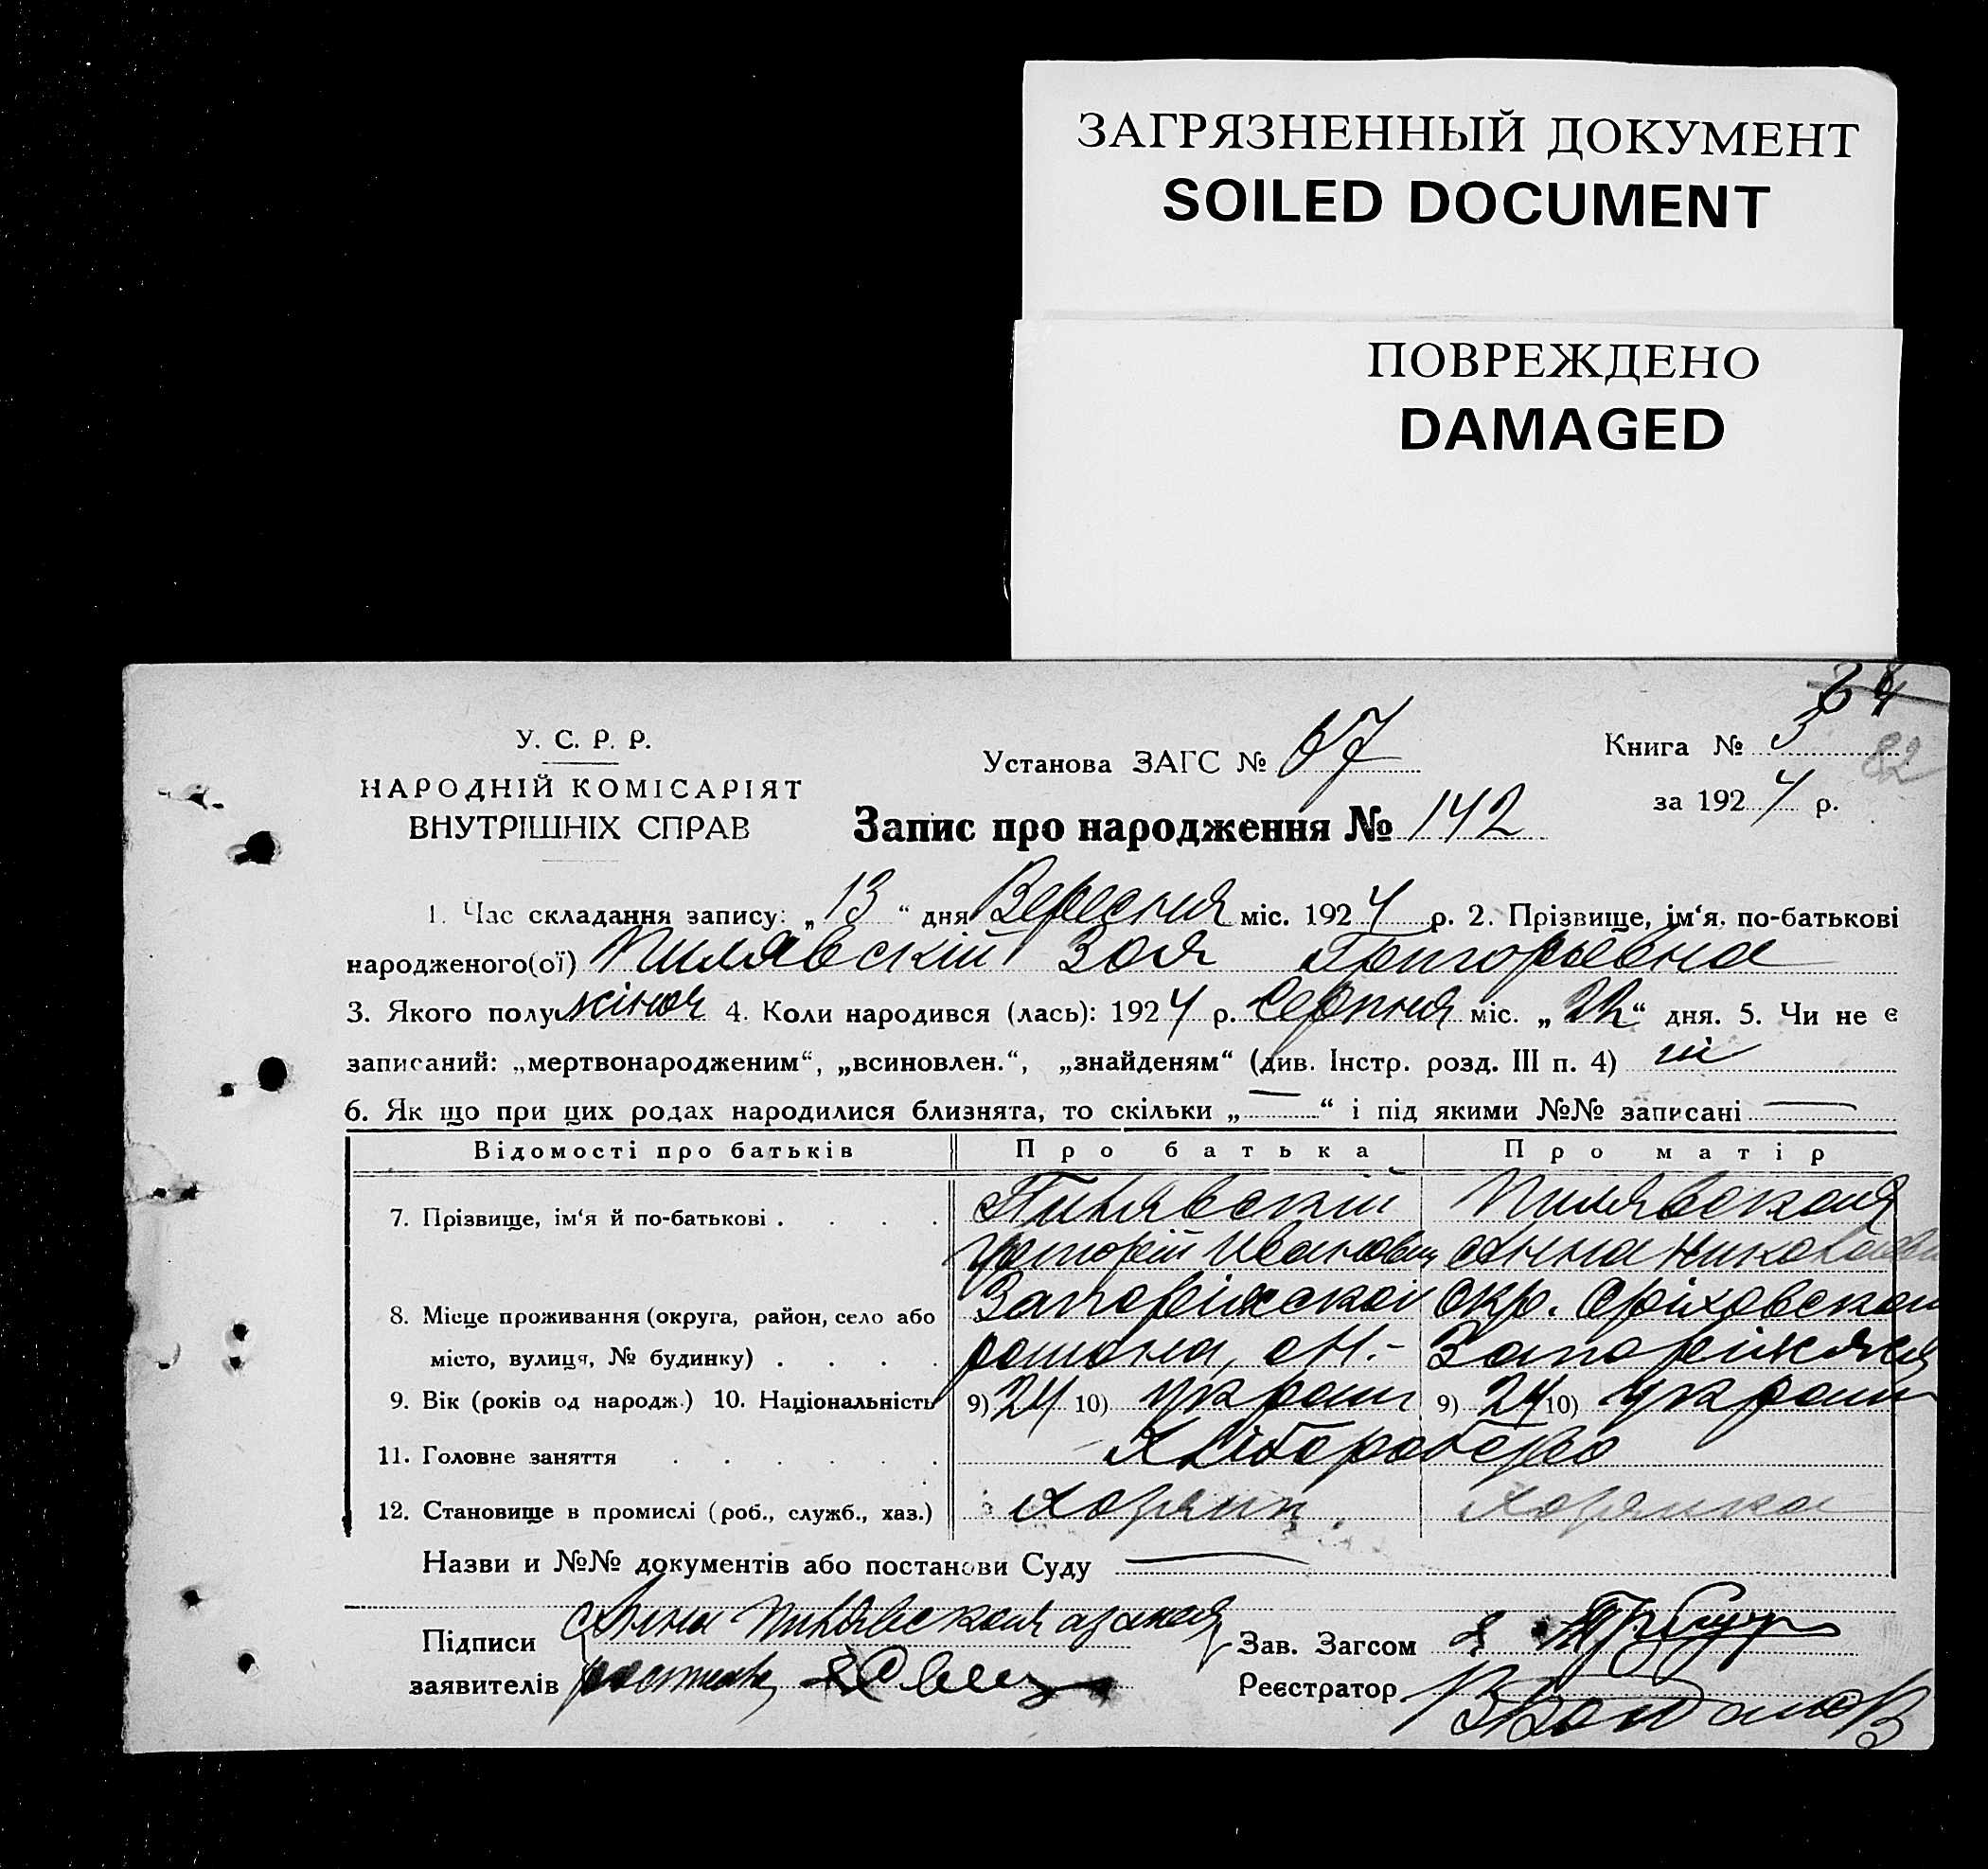 ЗАГРЯЗНЕННЫЙ ДОКУМЕНТ
SOILED DOCUMENT
ПОВРЕЖДЕНО
DAMAGED
64
У. С. Р. Р.
НАРОДНІЙ КОМІСАРІЯТ
ВНУТРІШНІХ СПРАВ
Установа ЗАГС № 67
Книга № 3
82
за 1924 р.
Запис про народження № 142
1. Час складання запису: „13“ дня Вересния міс. 1924 р. 2. Прізвище, ім‘я, по-батькові
народженого(ої) Пилявскій Зоя Григорьевна
3. Якого полу жіноч 4. Коли народився (лась): 1924 р. Серпния міс. „22“ дня. 5. Чи не є
записаний: „мертвонародженим“, „всиновлен.“, „знайденям“ (див. Інстр. розд. III п. 4) ні
6. Як що при цих родах народилися близнята, то скільки „—“ і під якими №№ записані —
Відомості про батьків Про батька Про матір
7. Прізвище, ім‘я й по-батькові . . . . Пилявскій Пилявская
Григорій Иванович Анна Николаевн
8. Місце проживання (округа, район, село або Запоріжской Окр. Оріховского
місто, вулиця, № будинку) . . . . района,
9. Вік (років од народж.) 10. Національність 9) 24 10) украин 9) 24 10) украин
11. Головне заняття . . . . . . Хліборобство
12. Становище в промислі (роб., служб., хаз.) Хозяин. Хозяйка
Назви и №№ документів або постанови Суду —
Підписи Анна Пилявская
заявителів
Зав. Загсом
Реєстратор